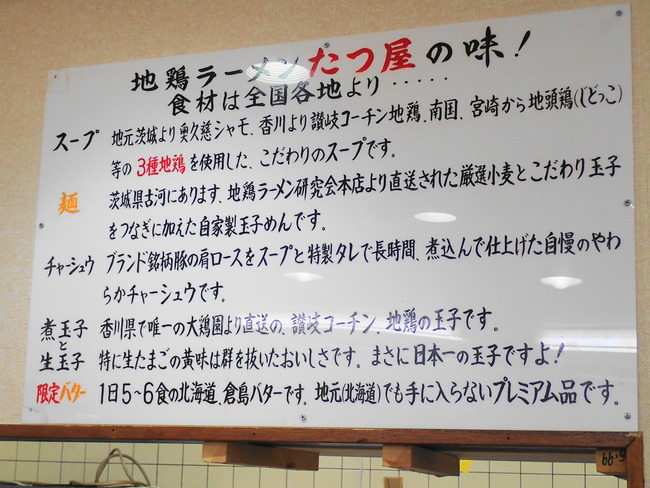 地鶏ラーメンたつ屋の味!
食材は全国各地より・・・・・
スープ 地元茨城より奥久慈シャモ、香川より讃岐コーチン地鶏、南国、宮崎から地頭鶏(じどっこ)
等の3種地鶏を使用した、こだわりのスープです。
麺 茨城県古河にあります、地鶏ラーメン研究会本店より直送された厳選小麦とこだわり玉子
をつなぎに加えた自家製玉子めんです。
チャーシュウ ブランド銘柄豚の肩ロースをスープと特製タレで長時間、煮込んで仕上げた自慢のやわ
らかチャーシュウです。
煮玉子と生玉子 香川県で唯一の大鶏園より直送の、讃岐コーチン、地鶏の玉子です。
特に生たまごの黄味は群を抜いたおいしさです。まさに日本一の玉子ですよ!
限定バター 1日5~6食の北海道、倉島バターです。地元(北海道)でも手に入らないプレミアム品です。